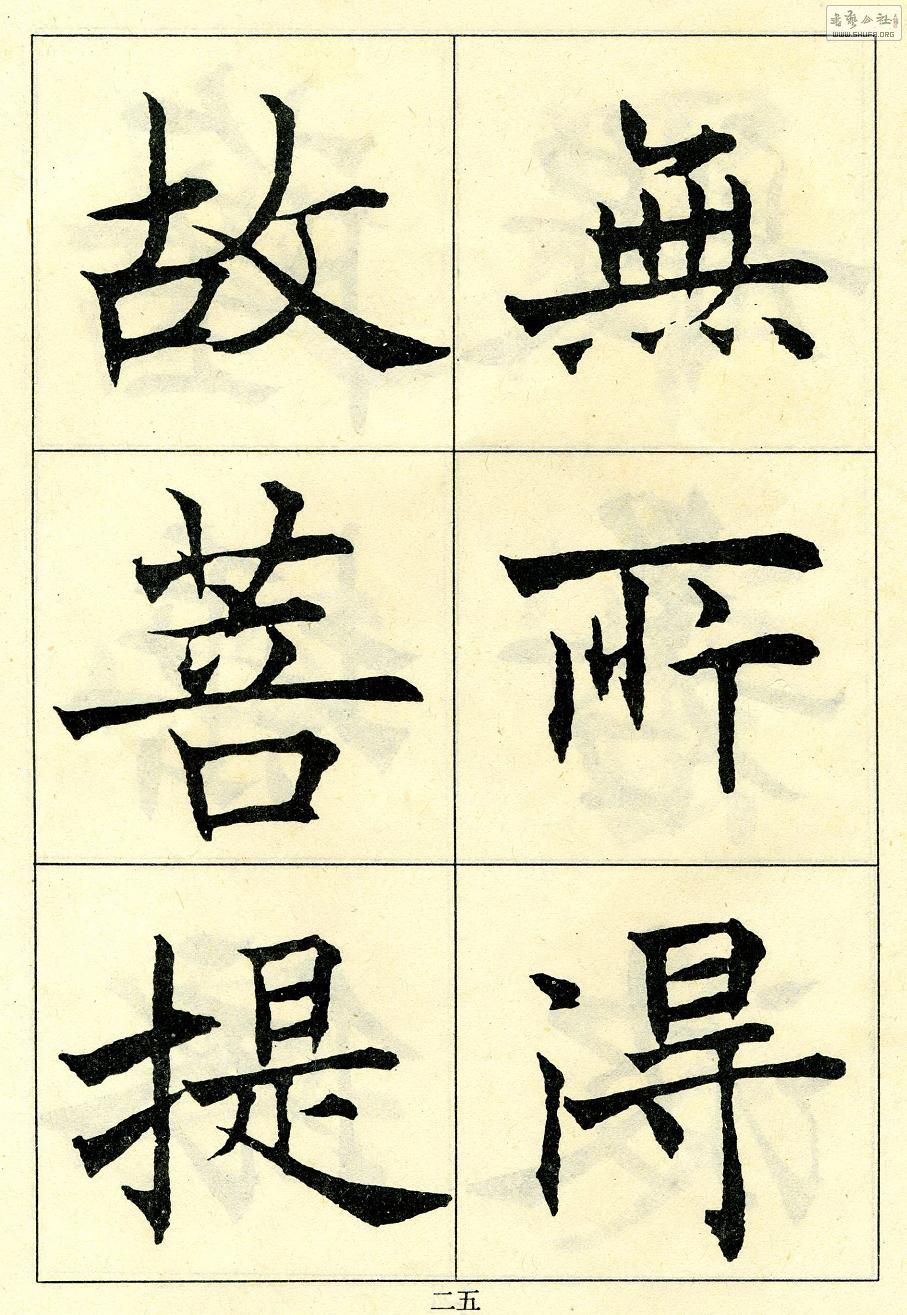 無所得
故菩提
二五
書藝公社
WWW.SHUFA.ORG